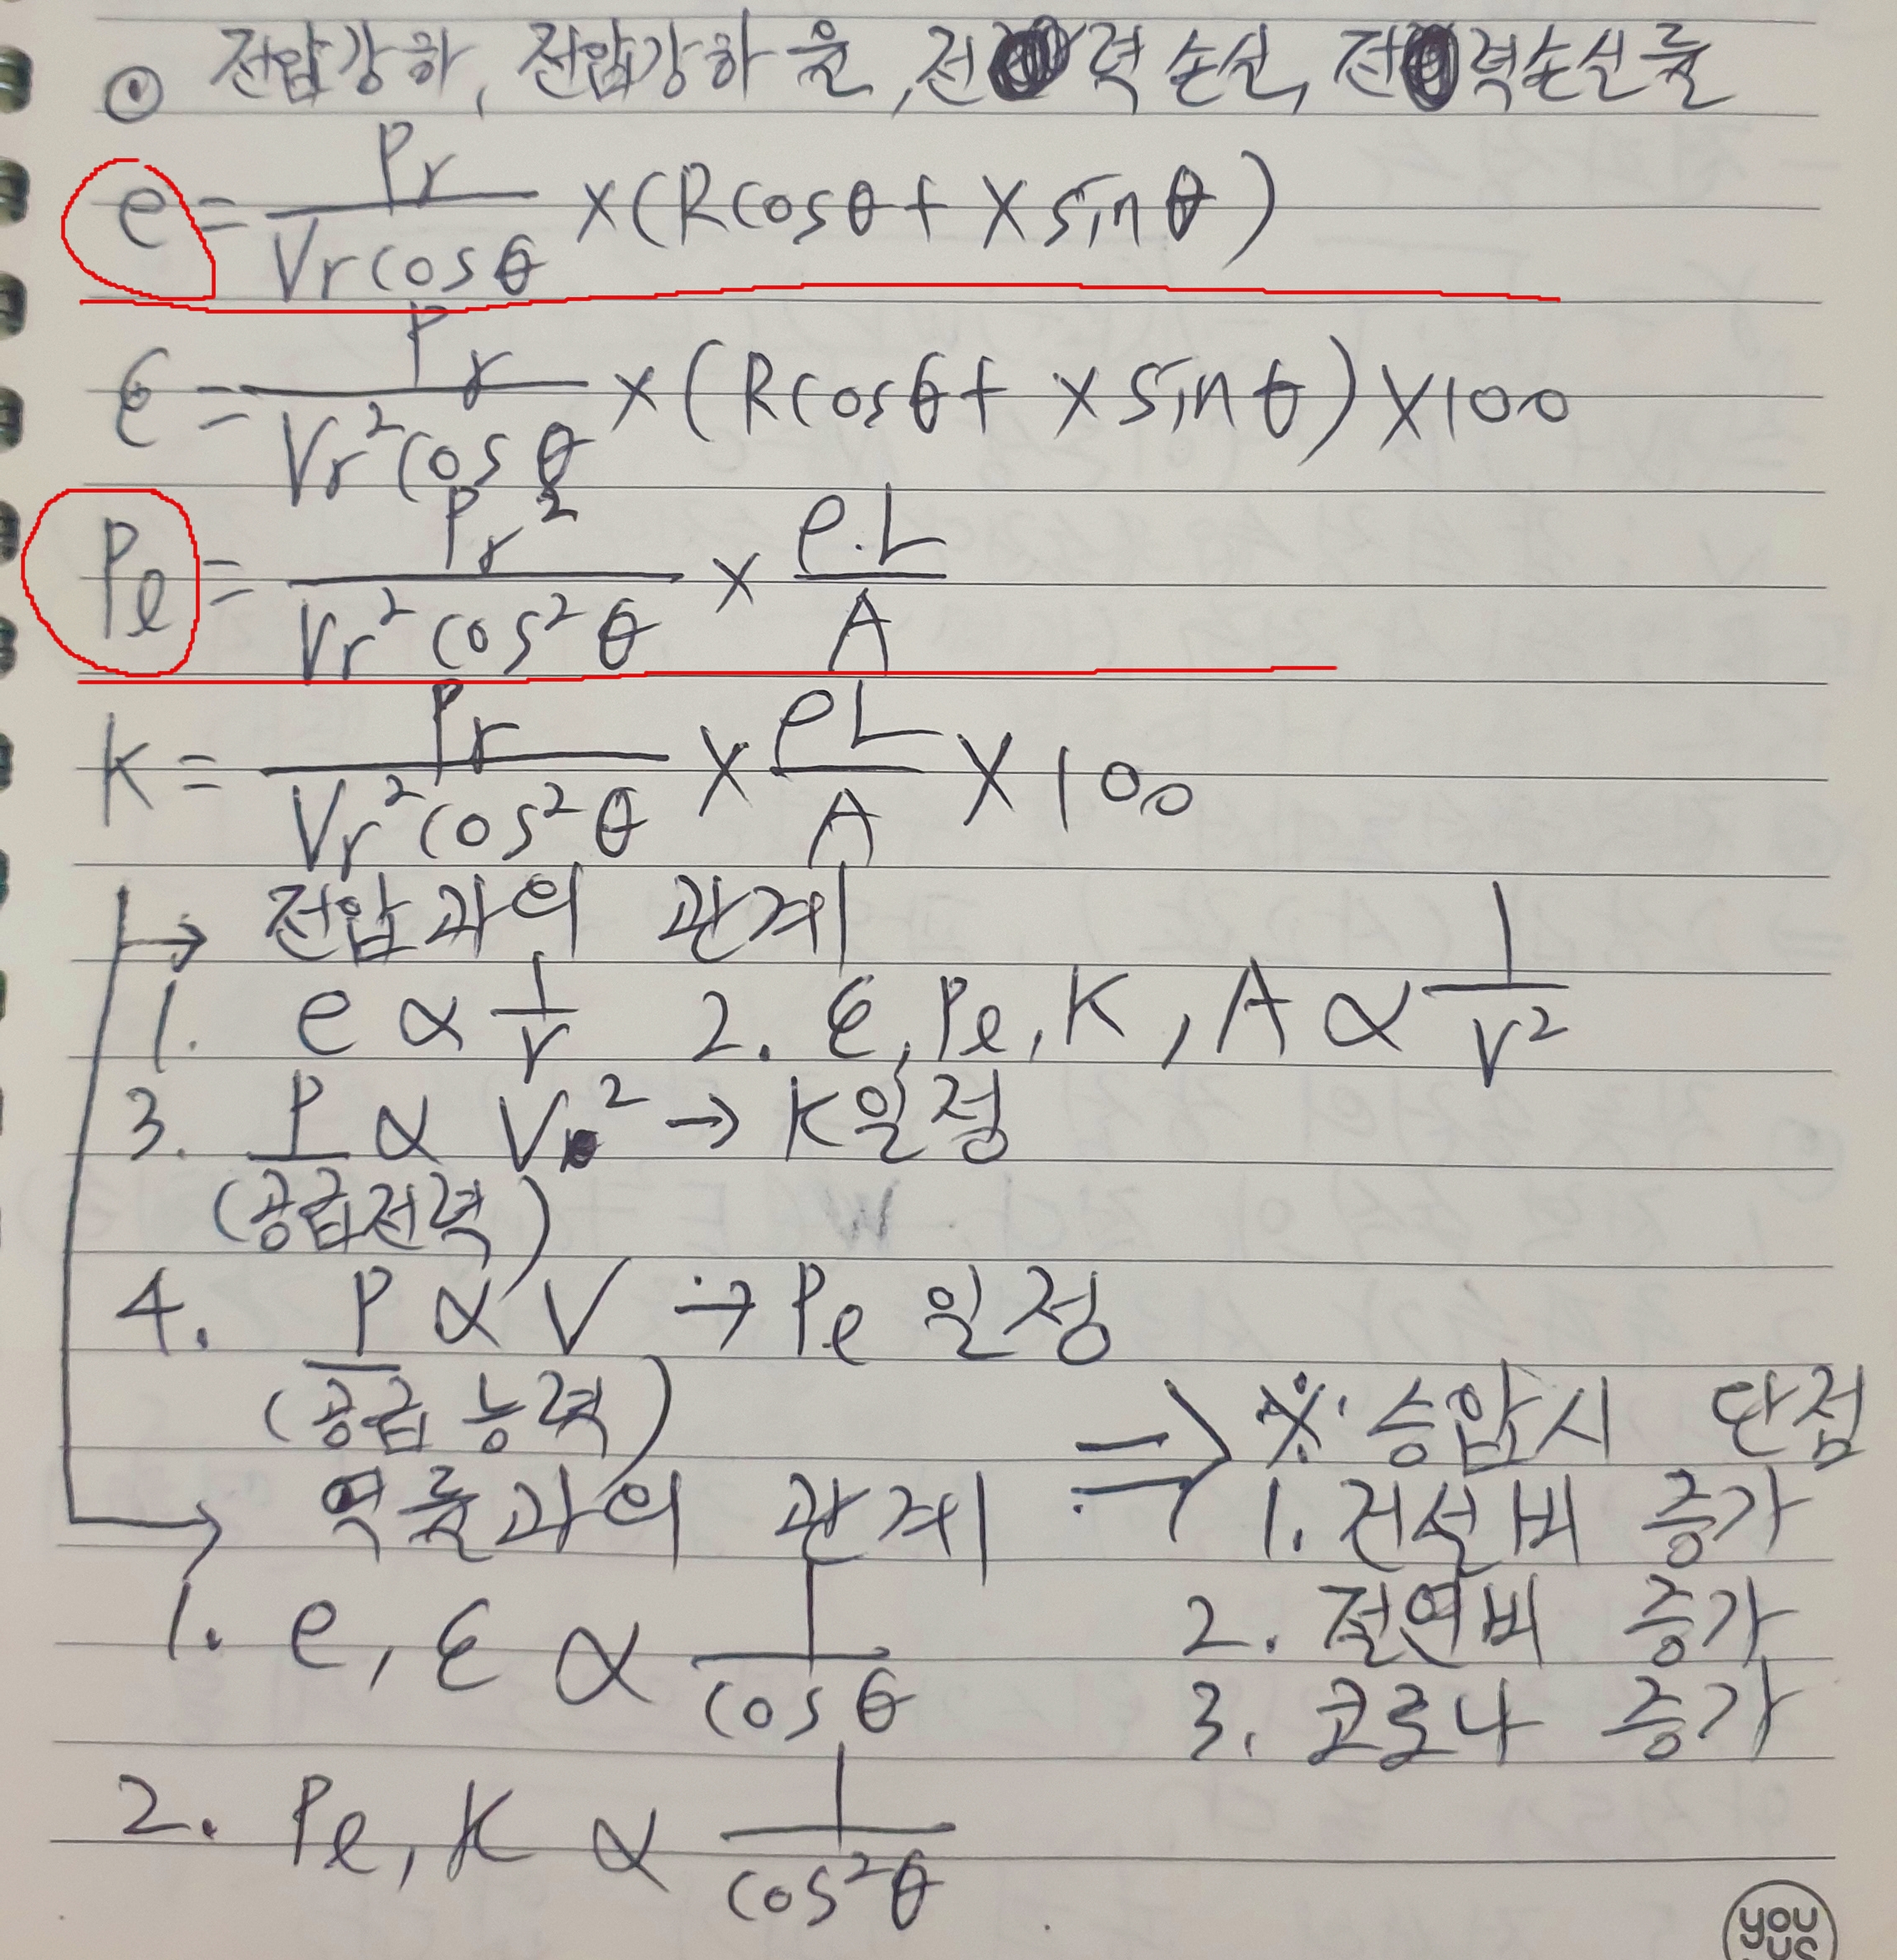 ⊙ 전압강하, 전압강하율, 전력손실, 전력손실률
e = Pr / Vr cosθ × (Rcosθ + X sinθ)
ε = Pr / Vr² cosθ × (Rcosθ + X sinθ) × 100
Pℓ = Pr² / Vr² cos²θ × ρ.L / A
K = Pr / Vr² cos²θ × ρL / A × 100
→ 전압과의 관계
1. e ∝ 1/r 2. ε, Pℓ, K, A ∝ 1/V²
3. P ∝ V² → K일정
(공급전력)
4. P ∝ V → Pℓ 일정
(공급 능력)
→ 역률과의 관계
1. e, ε ∝ 1/cosθ
2. Pℓ, K ∝ 1/cos²θ
⇒ ※ 승압시 단점
1. 건설비 증가
2. 절연비 증가
3. 코로나 증가
you
us